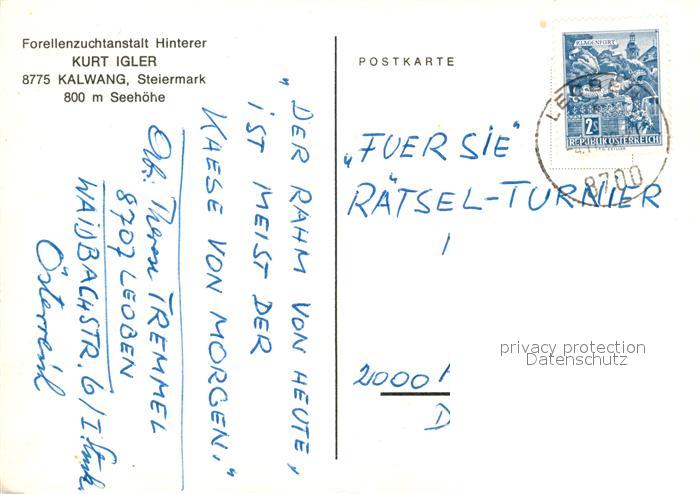 Forellenzuchtanstalt Hinterer
KURT IGLER
8775 KALWANG, Steiermark
800 m Seehöhe
POSTKARTE
KLAGENFURT
2S
REPUBLIK ÖSTERREICH
8700
"DER RAHM VON HEUTE,
IST MEIST DER
KAESE VON MORGEN."
TREMMEL
8707 LEOBEN
WAIDBACHSTR. 6/I.
Österreich
"FUER SIE"
RÄTSEL-TURNIER
2000
D
privacy protection
Datenschutz